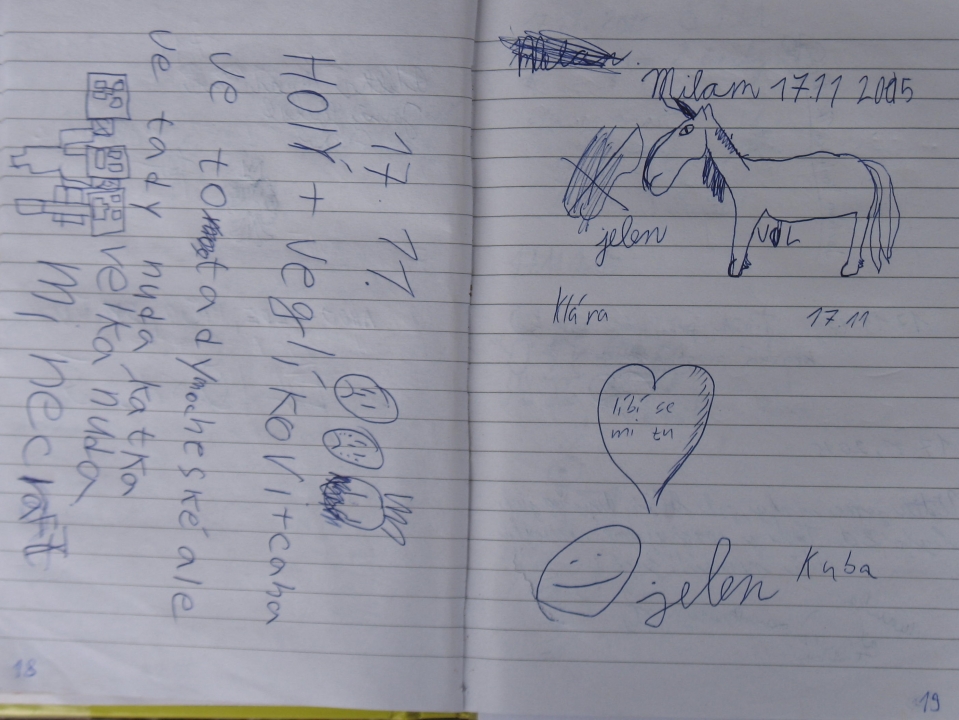 17. 11.
HOlÝ + Veglíkovi + caha
Ve to tady moc heské ale
Ve tady nuda katka
velka nuda
MI
18
Milam 17.11 2005
jelen
VůL
Klára 17.11
líbí se
mi tu
jelen Kuba
19